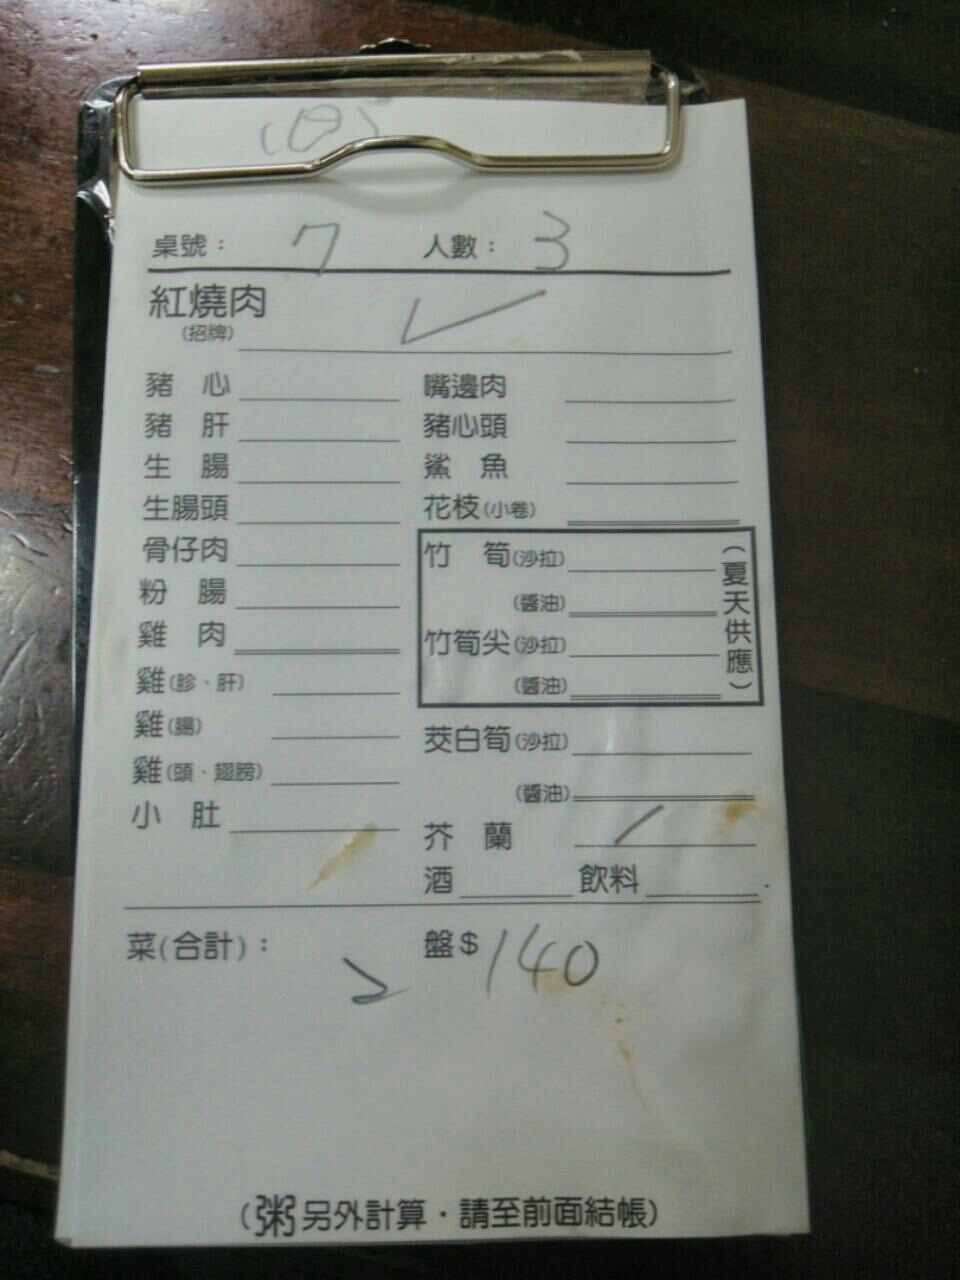 桌號： 7 人數： 3
紅燒肉 ✓
(招牌)
豬 心 嘴邊肉
豬 肝 豬心頭
生 腸 鯊 魚
生腸頭 花枝(小卷)
骨仔肉 竹 筍(沙拉)
粉 腸 (醬油)
雞 肉 竹筍尖(沙拉)
雞(胗、肝) (醬油)
(夏天供應)
雞(腸) 茭白筍(沙拉)
雞(頭、翅膀) (醬油)
小 肚 芥 蘭 /
酒 飲料
菜(合計)： 2 盤$ 140
(粥另外計算．請至前面結帳)